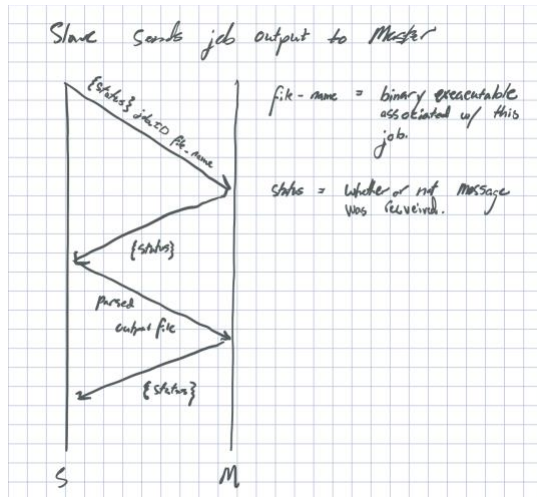 Slave sends job output to Master
{status} jobID file_name
file-name = binary exeacutable
associated w/ this
job.
status = whether or not message
was received.
{status}
parsed
output file
{status}
S M